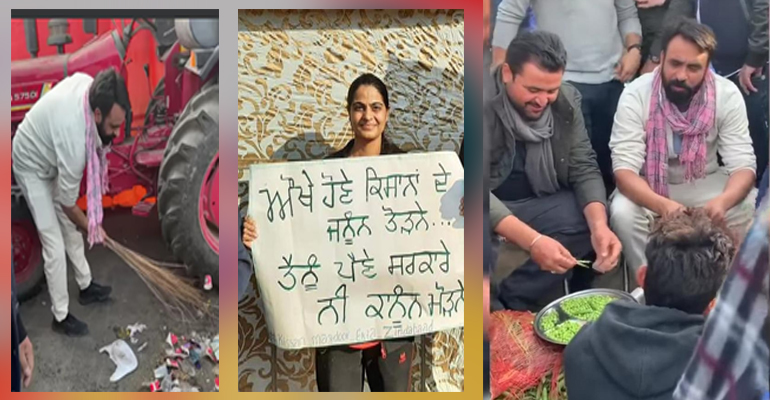 575 DI
ਔਖੇ ਹੋਣੇ ਕਿਸਾਨਾਂ ਦੇ
ਜਨੂੰਨ ਤੋੜਨੇ...
ਤੈਨੂੰ ਪੈਣੇ ਸਰਕਾਰੇ
ਨੀ ਕਾਨੂੰਨ ਮੋੜਨੇ
#Kissan mazdoor Ekta Zindabaad